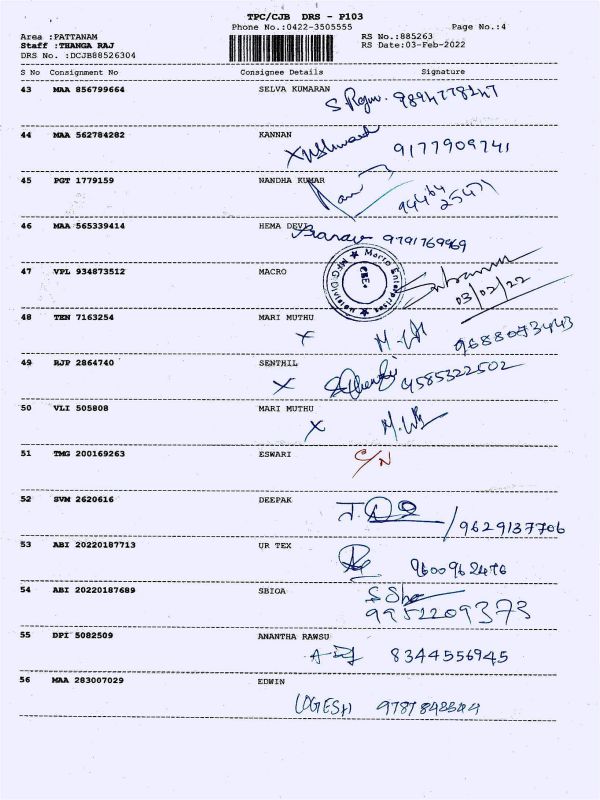 TPC/CJB DRS - P103
Phone No.:0422-3505555 Page No.:4
Area :PATTANAM RS No.:885263
Staff :THANGA RAJ RS Date:03-Feb-2022
DRS No. :DCJB88526304
S No Consignment No Consignee Details Signature
43 MAA 856799664 SELVA KUMARAN
44 MAA 562784282 KANNAN
9177909741
45 PGT 1779159 NANDHA KUMAR
94464
25471
46 MAA 565339414 HEMA DEVI
9791769969
47 VPL 934873512 MACRO
Macro Enterprises MFG-Division CBE
03/02/22
48 TEN 7163254 MARI MUTHU
X 9688073443
49 RJP 2864740 SENTHIL
X 9585322502
50 VLI 505808 MARI MUTHU
X
51 TMG 200169263 ESWARI
C/N
52 SVM 2620616 DEEPAK
9629137706
53 ABI 20220187713 UR TEX
9600962476
54 ABI 20220187689 SBIOA
9952209373
55 DPI 5082509 ANANTHA RAWSU
8344556945
56 MAA 283007029 EDWIN
LOGESH